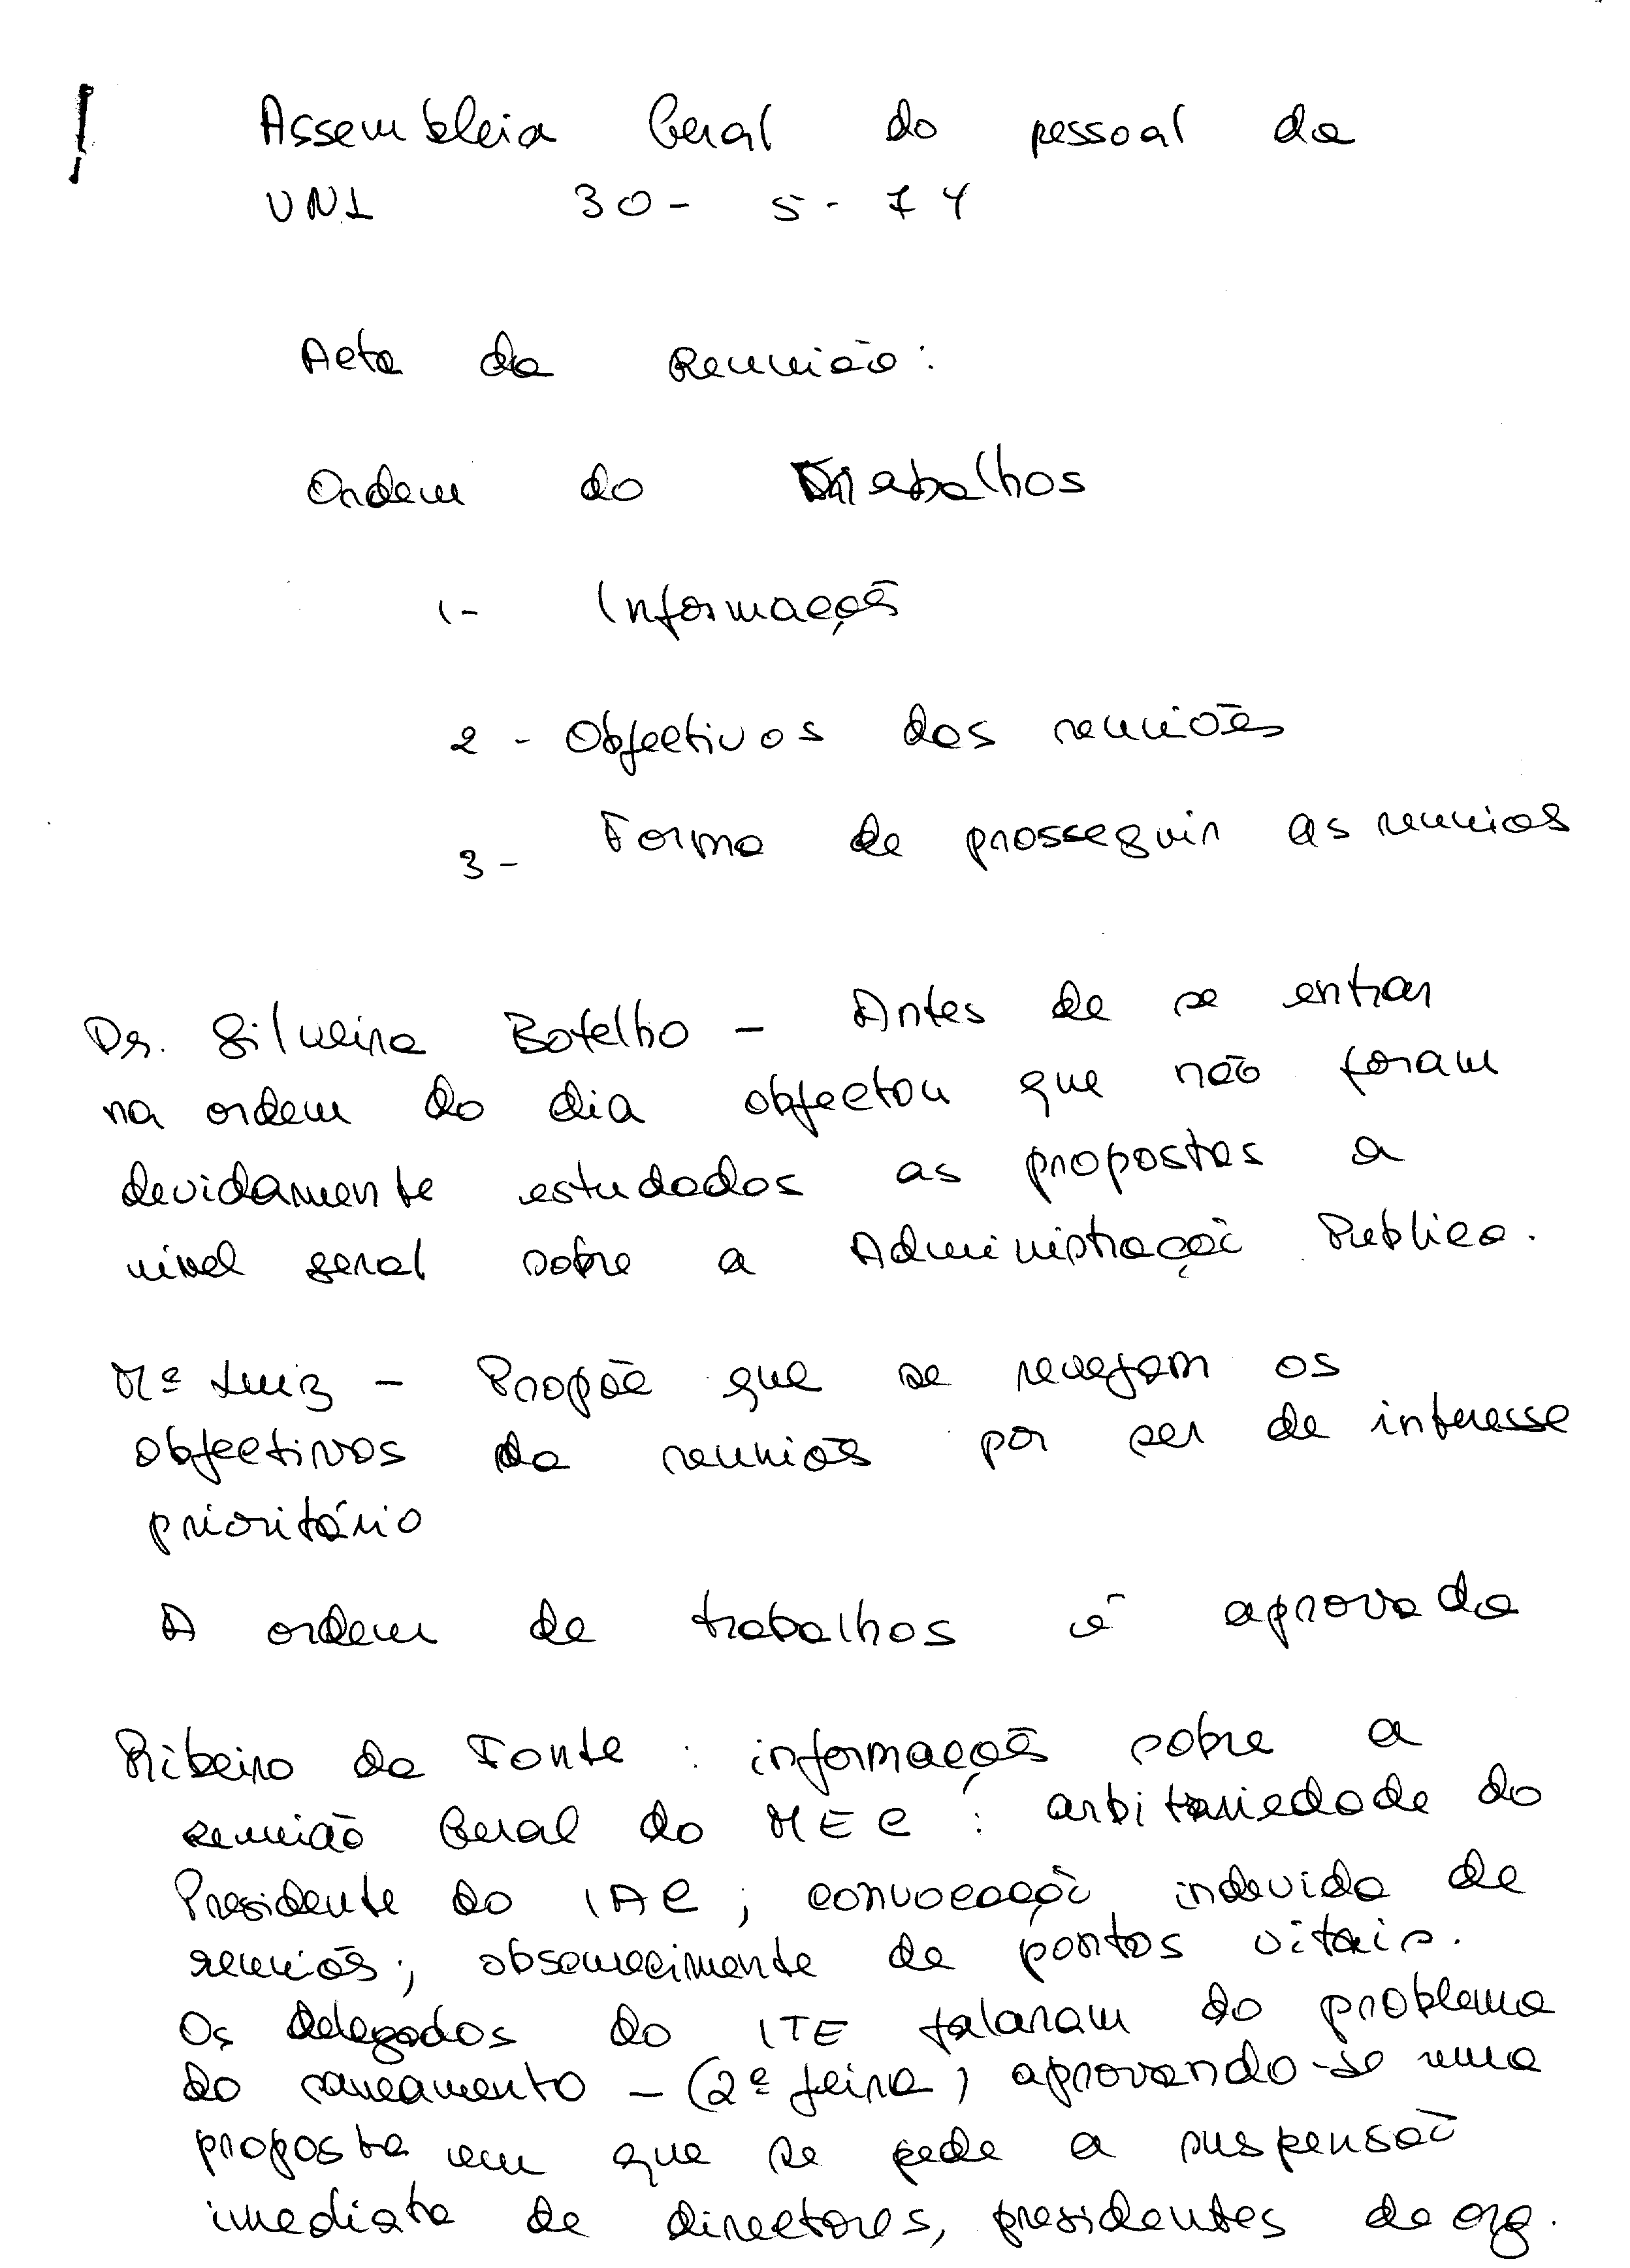 Assembleia Geral do pessoal da
UNL 30 - 5 - 74
Acta da Reunião:
Ordem do Trabalhos
1- Informações
2 - Objectivos das reuniões
3- Forma de prosseguir as reuniões
Dr. Silveira Botelho - Antes de se entrar
na ordem do dia objectou que não foram
devidamente estudados as propostas a
nível geral sobre a Administração Publica.
Mª Luiz - Propõe que se revejam os
objectivos da reuniões por ser de interesse
prioritário
A ordem de trabalhos é aprovada
Ribeiro da Fonte : informações sobre a
reunião Geral do MEC : arbitrariedade do
Presidente do IAC ; convocação indevida de
reuniões ; obscurecimento de pontos vitais.
Os delegados do ITE falaram do problema
do saneamento - (2ª feira) aprovando-se uma
proposta em que se pede a suspensão
imediata de directores, presidentes de org.